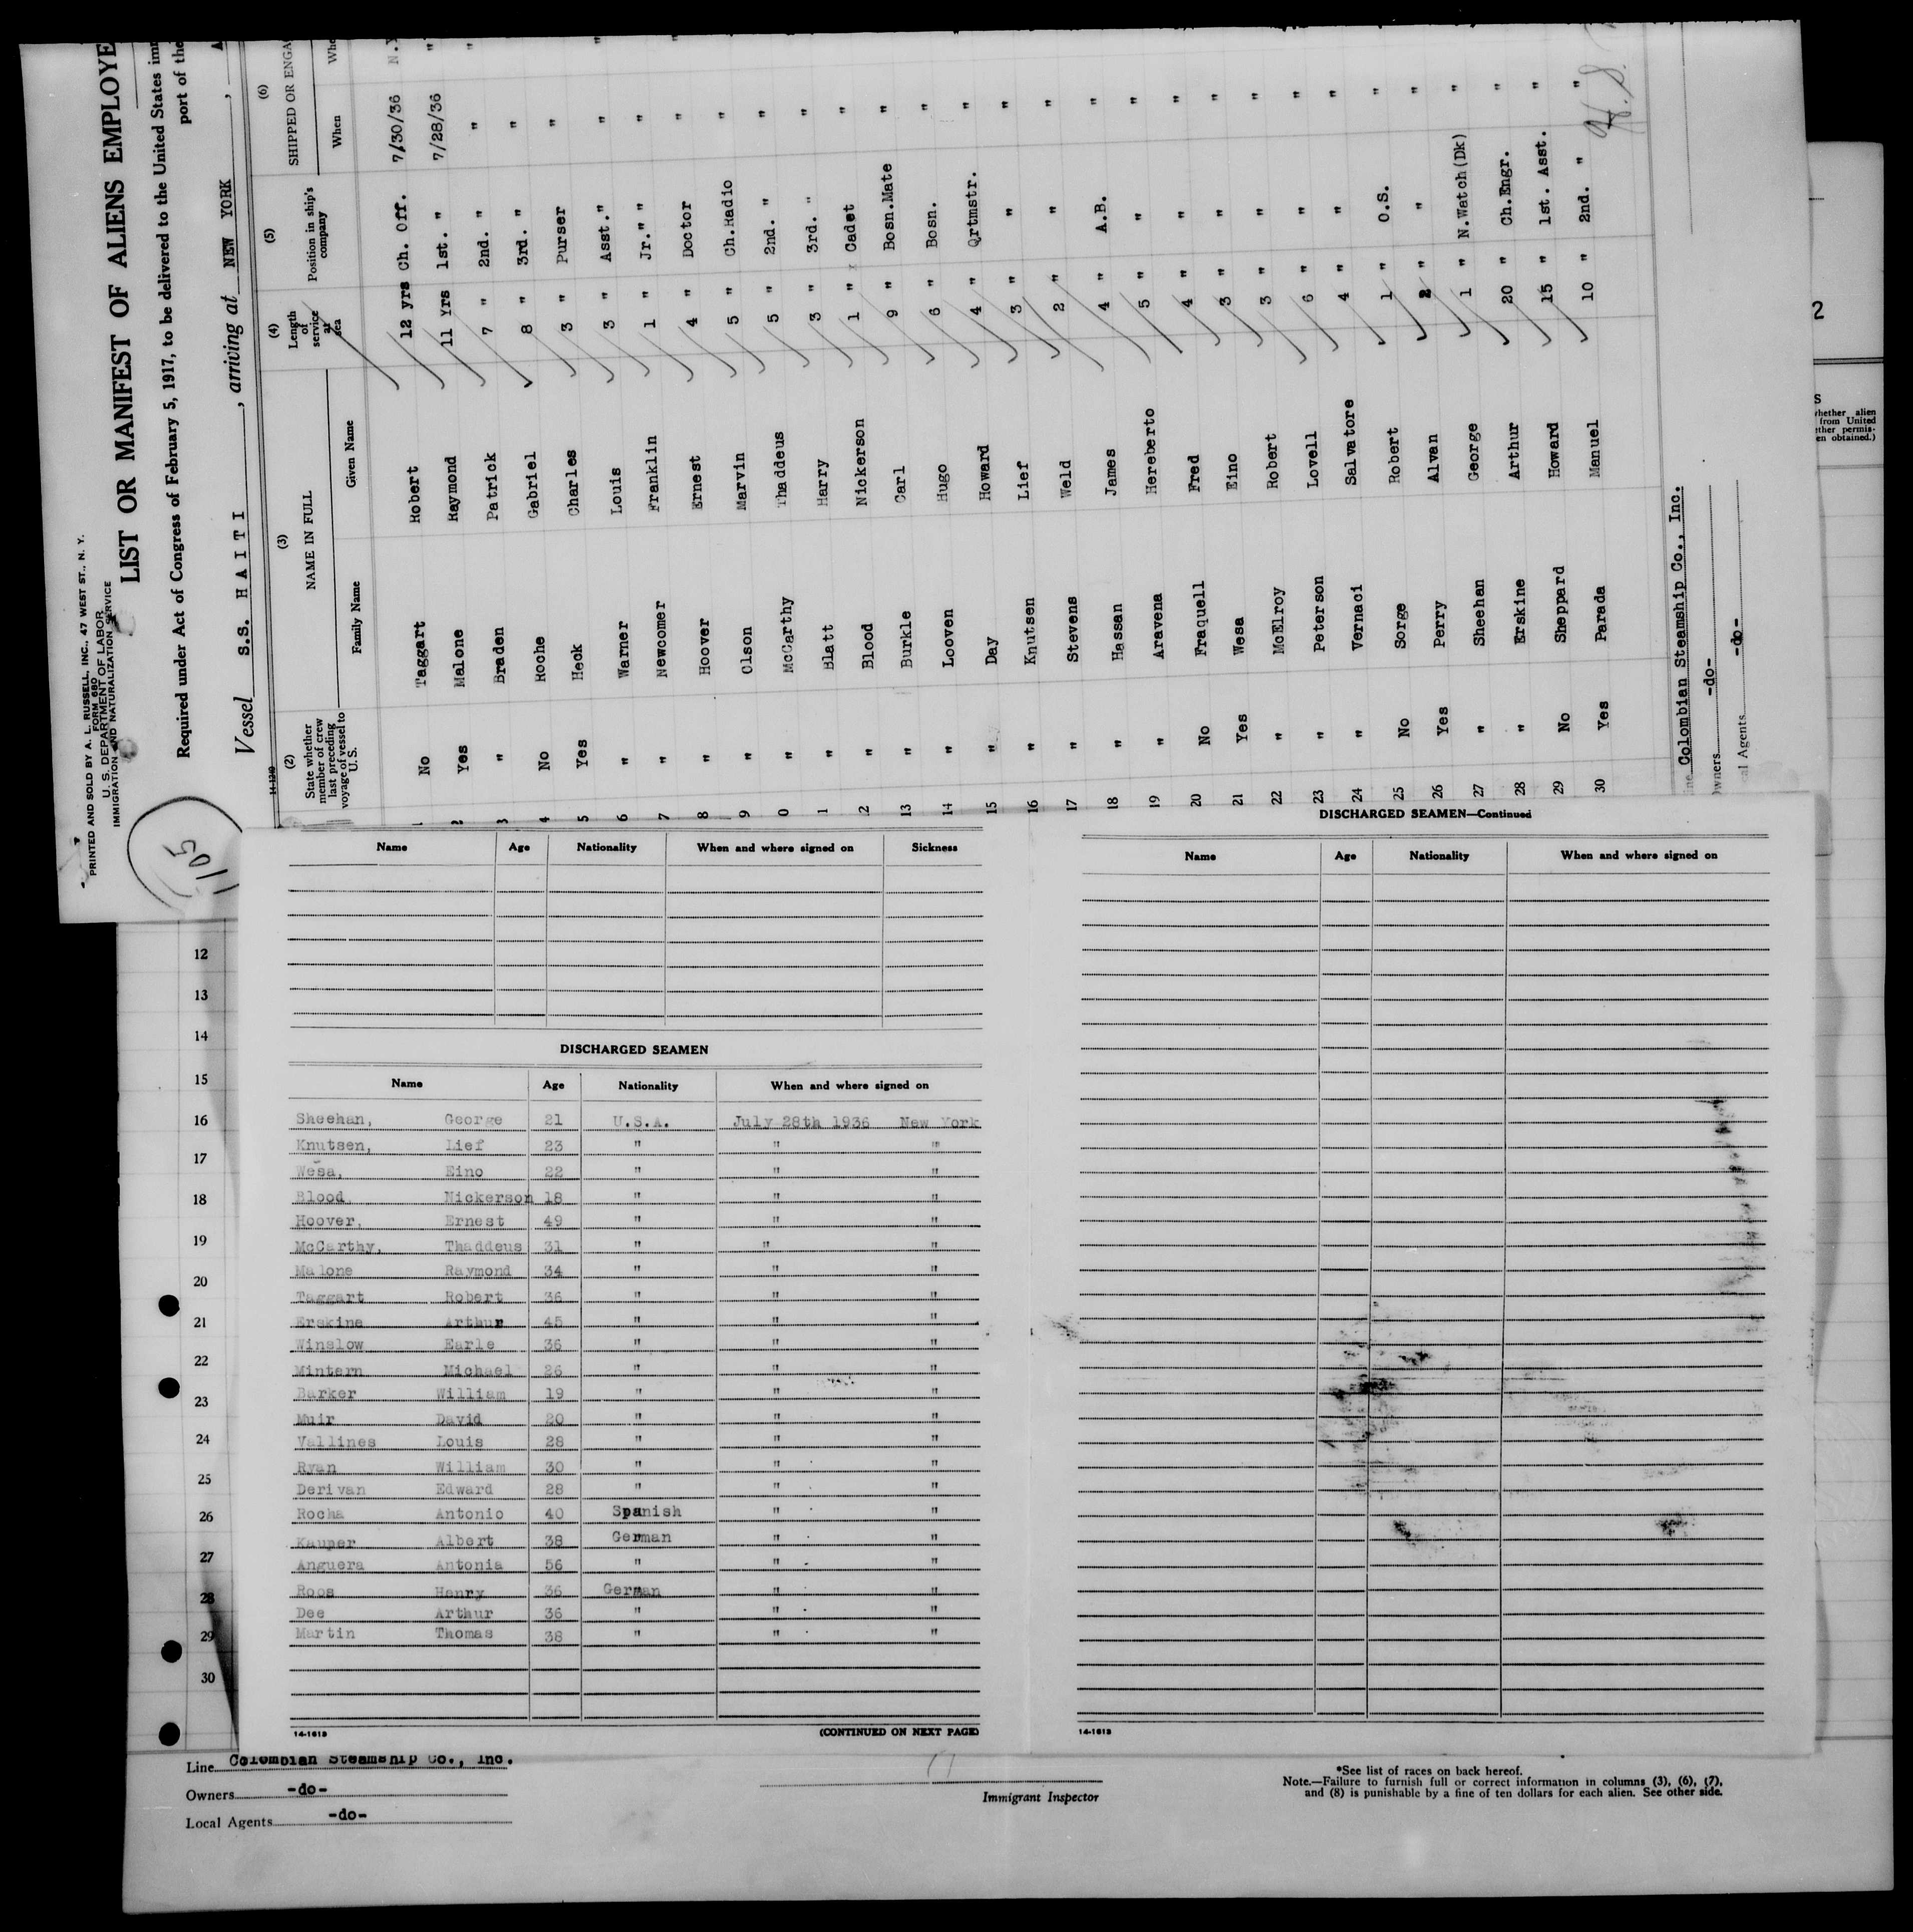 PRINTED AND SOLD BY A. L. RUSSELL, INC., 47 WEST ST., N. Y.
FORM 680
U. S. DEPARTMENT OF LABOR
IMMIGRATION AND NATURALIZATION SERVICE
LIST OR MANIFEST OF ALIENS EMPLOYE
Required under Act of Congress of February 5, 1917, to be delivered to the United States imm
port of the
Vessel S.S. H A I T I , arriving at NEW YORK , A
14-1240
(2) (3) (4) (5) (6)
State whether member of crew last preceding voyage of vessel to U.S. NAME IN FULL Length of service at sea Position in ship's company SHIPPED OR ENGA
Family Name Given Name When Whe
1 No Taggart Robert 12 yrs Ch. Off. 7/30/36 N.Y
2 Yes Malone Raymond 11 yrs 1st. " 7/28/36 "
3 " Braden Patrick 7 " 2nd. " " "
4 No Roche Gabriel 8 " 3rd. " "
5 Yes Heck Charles 3 " Purser "
6 " Warner Louis 3 " Asst." " "
7 " Newcomer Franklin 1 " Jr." " "
8 " Hoover Ernest 4 " Doctor " "
9 " Olson Marvin 5 " Ch.Radio "
0 " McCarthy Thaddeus 5 " 2nd. " "
1 " Blatt Harry 3 " 3rd. " "
2 " Blood Nickerson 1 " Cadet "
13 " Burkle Carl 9 " Bosn.Mate "
14 " Looven Hugo 6 " Bosn. "
15 " Day Howard 4 " Qrtmstr. "
16 " Knutsen Lief 3 " " "
17 " Stevens Weld 2 " " "
18 " Hassan James 4 " A.B. "
19 " Aravena Hereberto 5 " " "
20 No Fraquell Fred 4 " " "
21 Yes Wesa Eino 3 " " "
22 " McElroy Robert 3 " " "
23 " Peterson Lovell 6 " " "
24 " Vernaci Salvatore 4 " " "
25 No Sorge Robert 1 " O.S. "
26 Yes Perry Alvan 2 " " "
27 " Sheehan George 1 " N.Watch(Dk) "
28 " Erskine Arthur 20 " Ch.Engr. "
29 No Sheppard Howard 15 " 1st. Asst. "
30 Yes Parada Manuel 10 " 2nd. " "
ine Colombian Steamship Co., Inc.
wners -do-
al Agents -do-
105
2
S
hether alien
from United
ther permis-
en obtained.)
Name Age Nationality When and where signed on Sickness
DISCHARGED SEAMEN
Name Age Nationality When and where signed on
Sheehan, George 21 U.S.A. July 28th 1936 New York
Knutsen, Lief 23 " " "
Wesa, Eino 22 " " "
Blood, Nickerson 18 " " "
Hoover, Ernest 49 " " "
McCarthy, Thaddeus 31 " " "
Malone Raymond 34 " " "
Taggart Robert 36 " " "
Erskine Arthur 45 " " "
Winslow Earle 36 " " "
Mintern Michael 26 " " "
Barker William 19 " " "
Muir David 20 " " "
Vallines Louis 28 " " "
Ryan William 30 " " "
Derivan Edward 28 " " "
Rocha Antonio 40 Spanish " "
Kauper Albert 38 German " "
Anguera Antonia 56 " " "
Roos Henry 36 German " "
Dee Arthur 36 " " "
Martin Thomas 38 " " "
14-1613 (CONTINUED ON NEXT PAGE)
DISCHARGED SEAMEN—Continued
Name Age Nationality When and where signed on
14-1613
12
13
14
15
16
17
18
19
20
21
22
23
24
25
26
27
28
29
30
Line Colombian Steamship Co., Inc.
Owners -do-
Local Agents -do-
Immigrant Inspector
*See list of races on back hereof.
Note.—Failure to furnish full or correct information in columns (3), (6), (7),
and (8) is punishable by a fine of ten dollars for each alien. See other side.